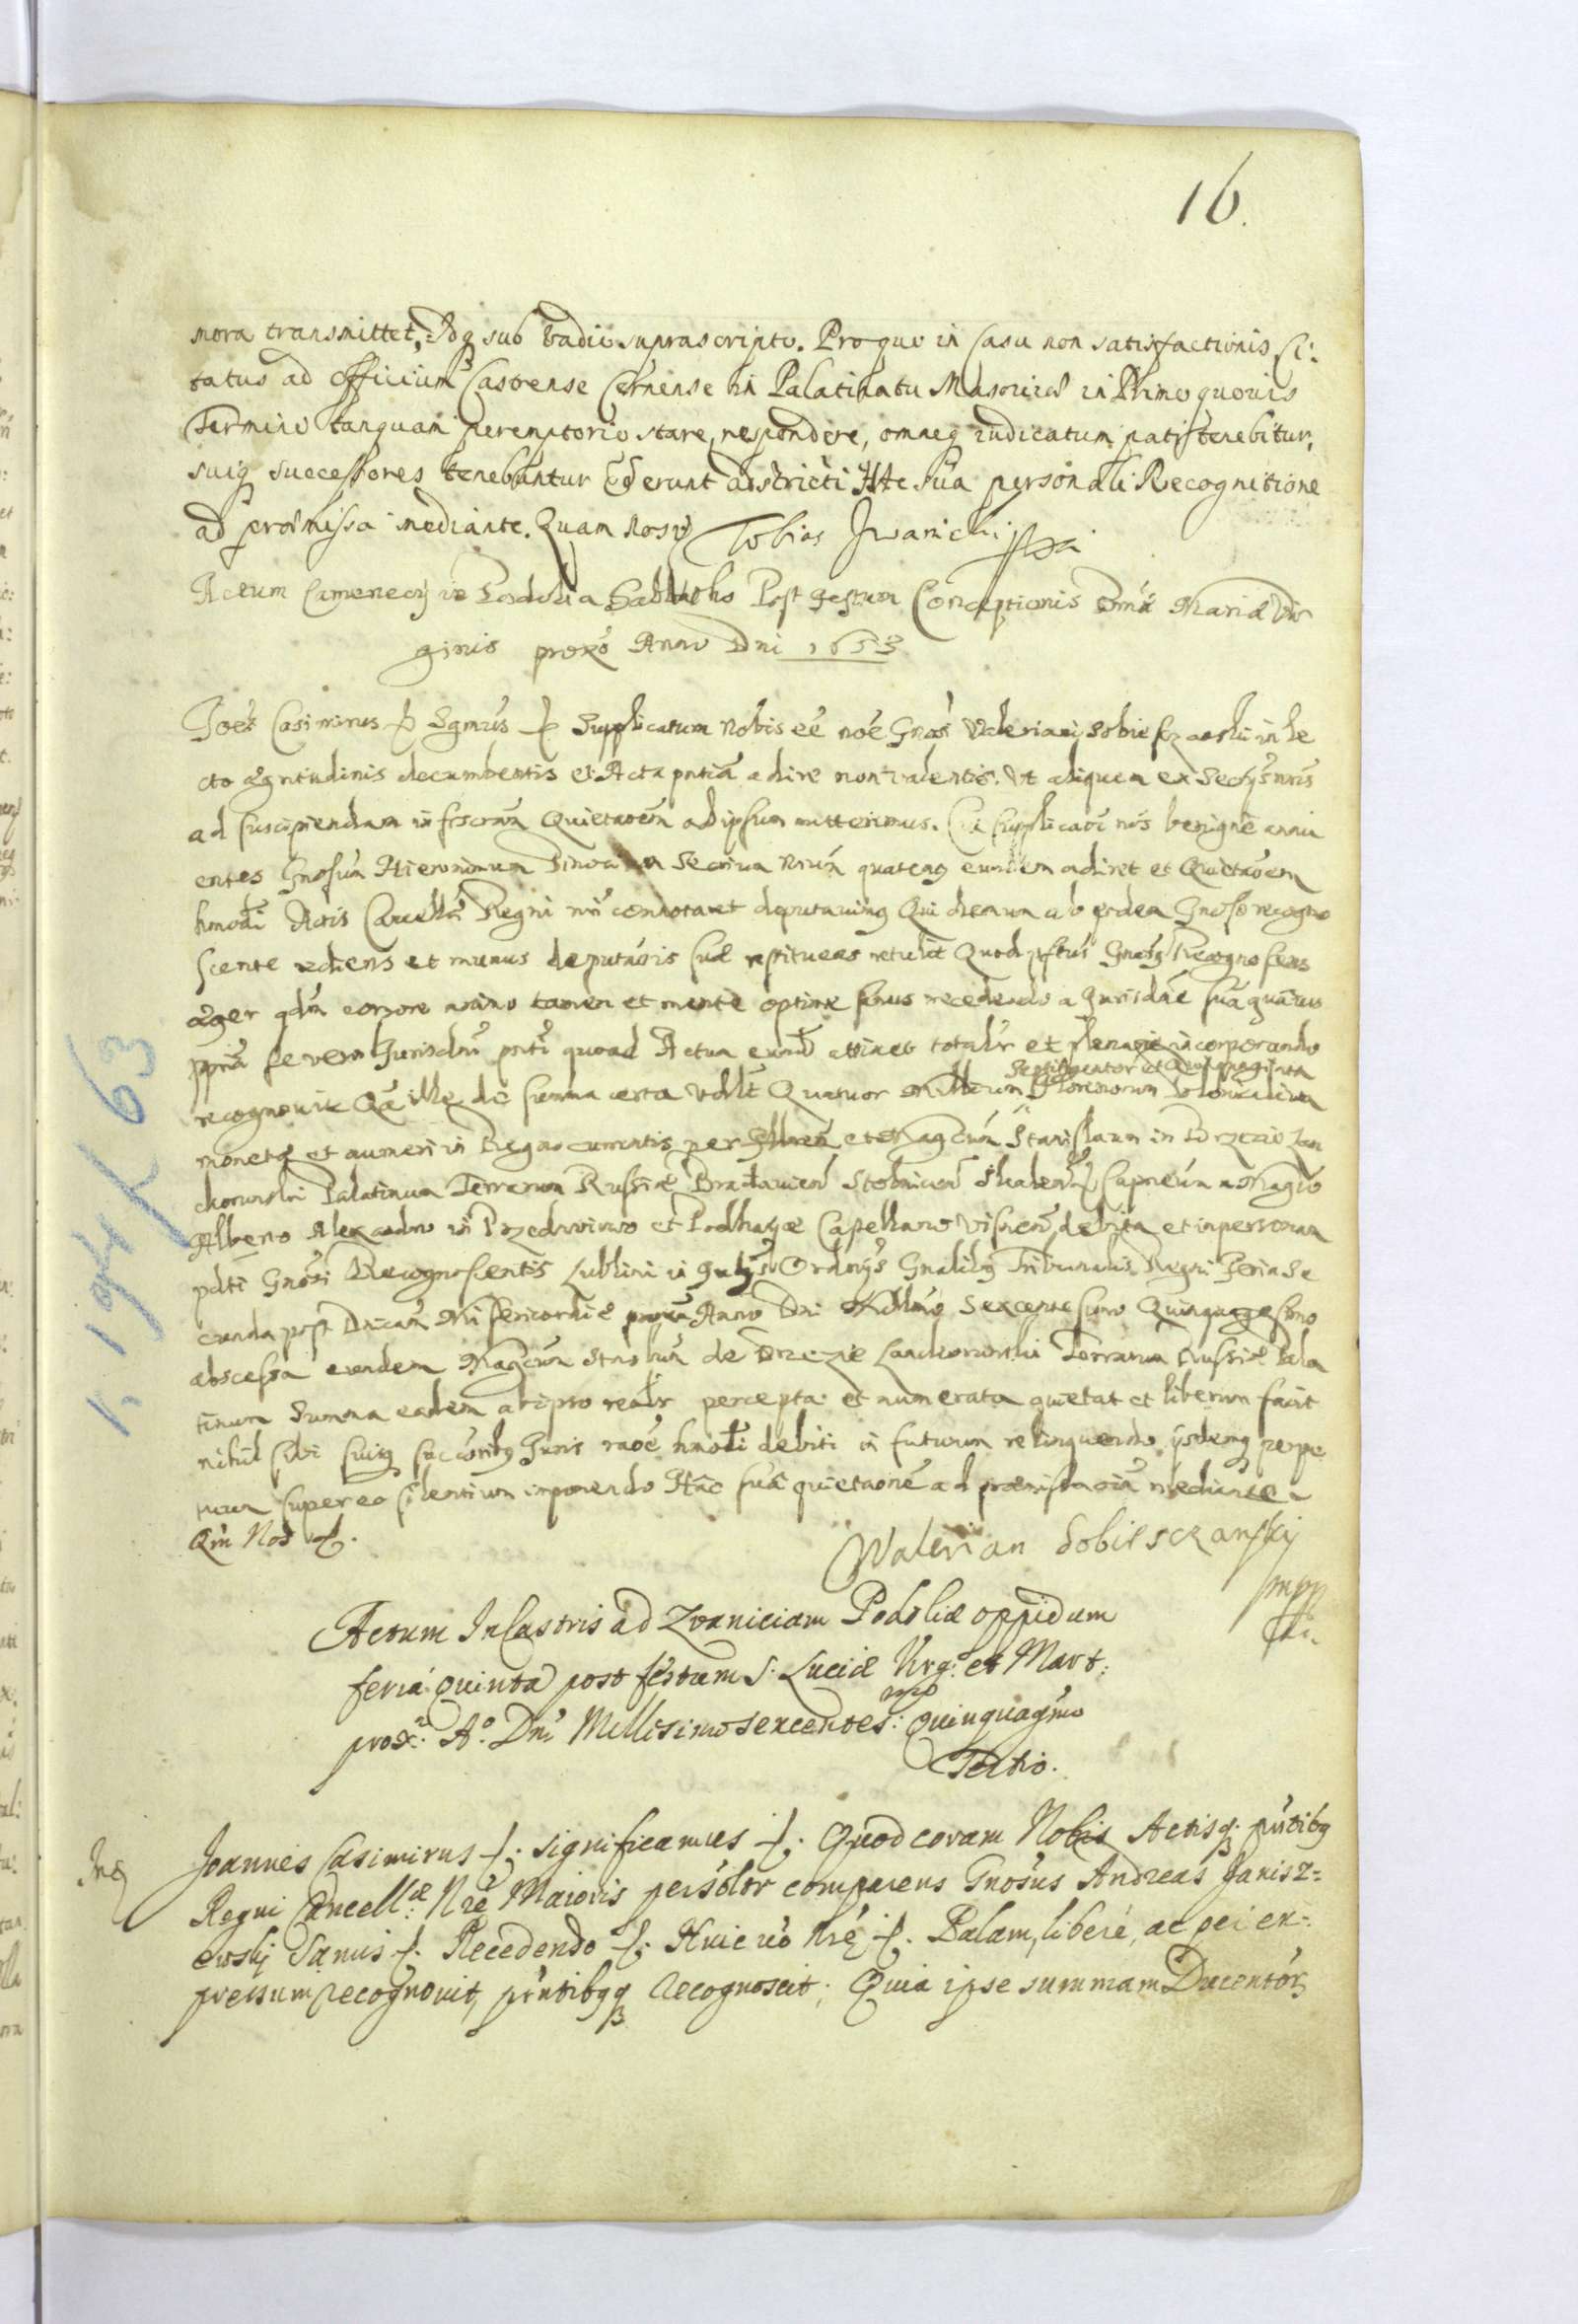 16.
mora transmittet, Idq sub vadio suprascripto. Pro quo in Casu non satisfactionis Ci:
tatus ad Officium Castrense Cernense in Palatinatu Masoviæ in Primo quovis
Termino tanquam peremptorio stare, respondere, omneq iudicatum pati tenebitur,
suiq successores tenebuntur et erunt adstricti Hac sua personali Recognitione
ad præmissa mediante. Quam Nos Tobias Iwanicki mpp
Actum Camenecij in Podolia Sabbatho Post Festum Conceptionis Bmæ Mariæ Vir
ginis proxo Anno Dni 1653
Joës Casimirus Sgmus Supplicatum Nobis eé noé Gnosi Valeriani Sobiesczanski in le
cto ægritudinis decumbentis et Acta pntia adire non valentis. Ut aliquem ex Secrijs nris
ad suscipiendam infrscram Quietaoem ad ipsum mitteremus. Cui supplicaoi nos benigne annu
entes Gnosum Hieronimum Pinocium Secrium Nrum quatenq eundem adiret et Quietaoem
hmodi Actis Cancellæ Regni nri connotaret deputavimq Qui dictum ab eodem Gnoso recogno
scente rediens et munus deputaois suæ restituens retulit Quod pstus Gnosq Recognoscens
æger qdm corpore animo tamen et mente optime sanus recedendo a Jurisdne sua quavis
ppria se vero Jurisdni pnti quoad Actum eumd attinet totalr et plenarie incorporando
recognovit Qa ille de summa certa vdlt Quatuor Millium Septingentor et Quinquaginta Florenorum Polonicaliu
monetæ et numeri in Regno currentis per Illrem et Magcum Stanislaum in Brzezie Lan
ckoronski Palatinum Terrarum Russiæ Braclavien Stobnicen Skalen Capneum a Magco
Alberto Alexandro in Przedwoiewo et Podhayce Capellano Visnen debita et in personam
pdti Gnosi Recognoscentis Lublini in Judijs Ordrijs Gnalibq Tribunalis Regni Feria Se
cunda post Dncam Misericordiæ proxa Anno Dni Millmo Sexcentesimo Quinquagesimo
abscessa eundem Magcum Stnslaum de Brzezie Lanckoronski Terrarum Russiæ Pala
tinum Summa eadem ab ipso realr percepta et numerata quietat et liberum facit
nihil sibi suisq succoribq Juris raoé hmodi debiti in futurum relinquendo ijsdemq perpe
tuum super eo silentium imponendo Hac sua quietaone ad præmissa oia mediante
Qm Nos
Walerian Sobiesczanskj
mpp
Actum In Castris ad Zvaniciam Podoliæ oppidum
feria Quinta post festum S. Luciæ Virg: et Mart:
prox: Ao. Dni Millesimo sexcentes:mo Quinquagmo
Tertio.
Joannes Casimirus significamus Quod coram Nobis Actisq pntibq
Regni Cancellæ Nræ Maioris persolr comparens Gnosus Andreas Janisz=
ewskj Sanus Recedendo Huic vo Nræ Palam, libere, ac per ex=
pressum recognovit, pntibqq recognoscit; Quia ipse summam Ducentor
1. 194 K 63